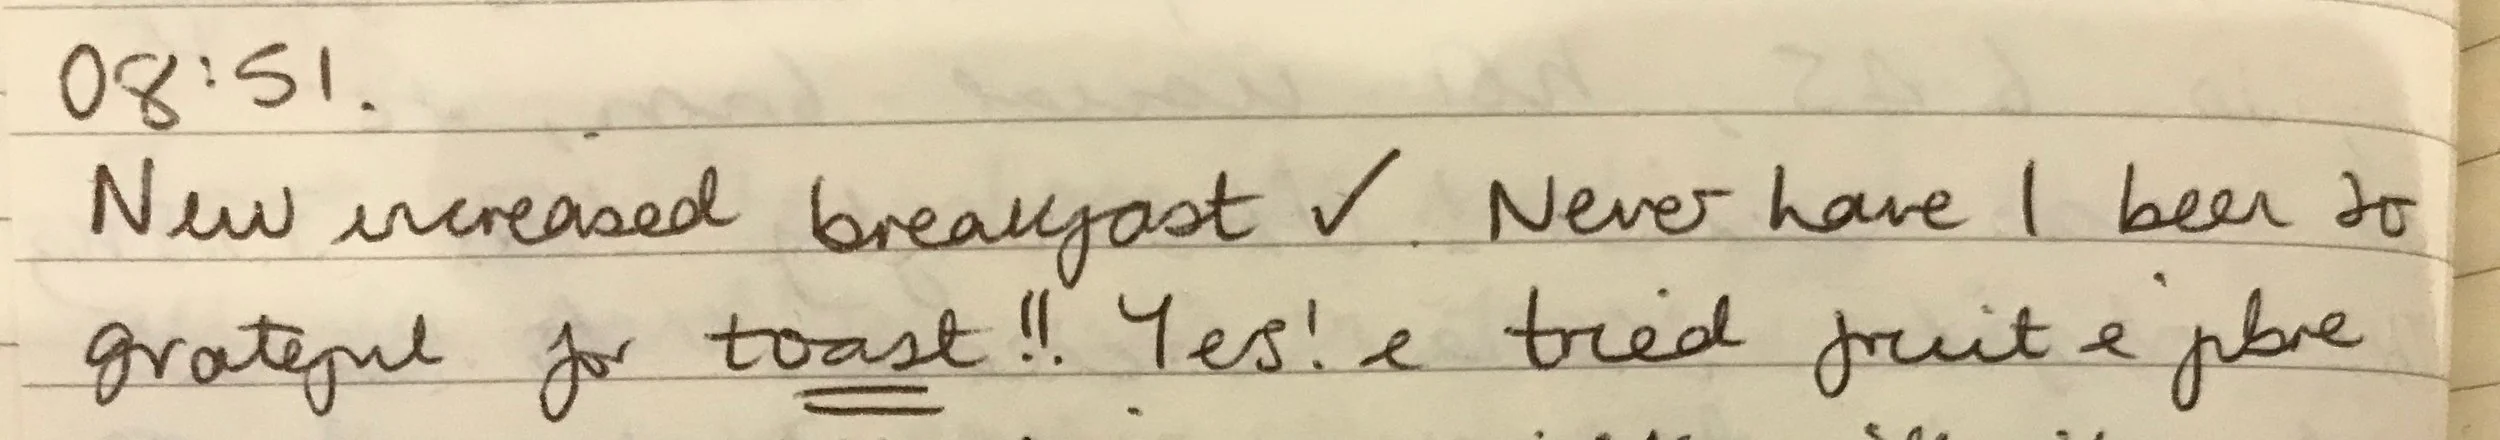 08:51.
New increased breakfast ✓. Never have I been so
grateful for toast!! Yes! & tried fruit & fibre